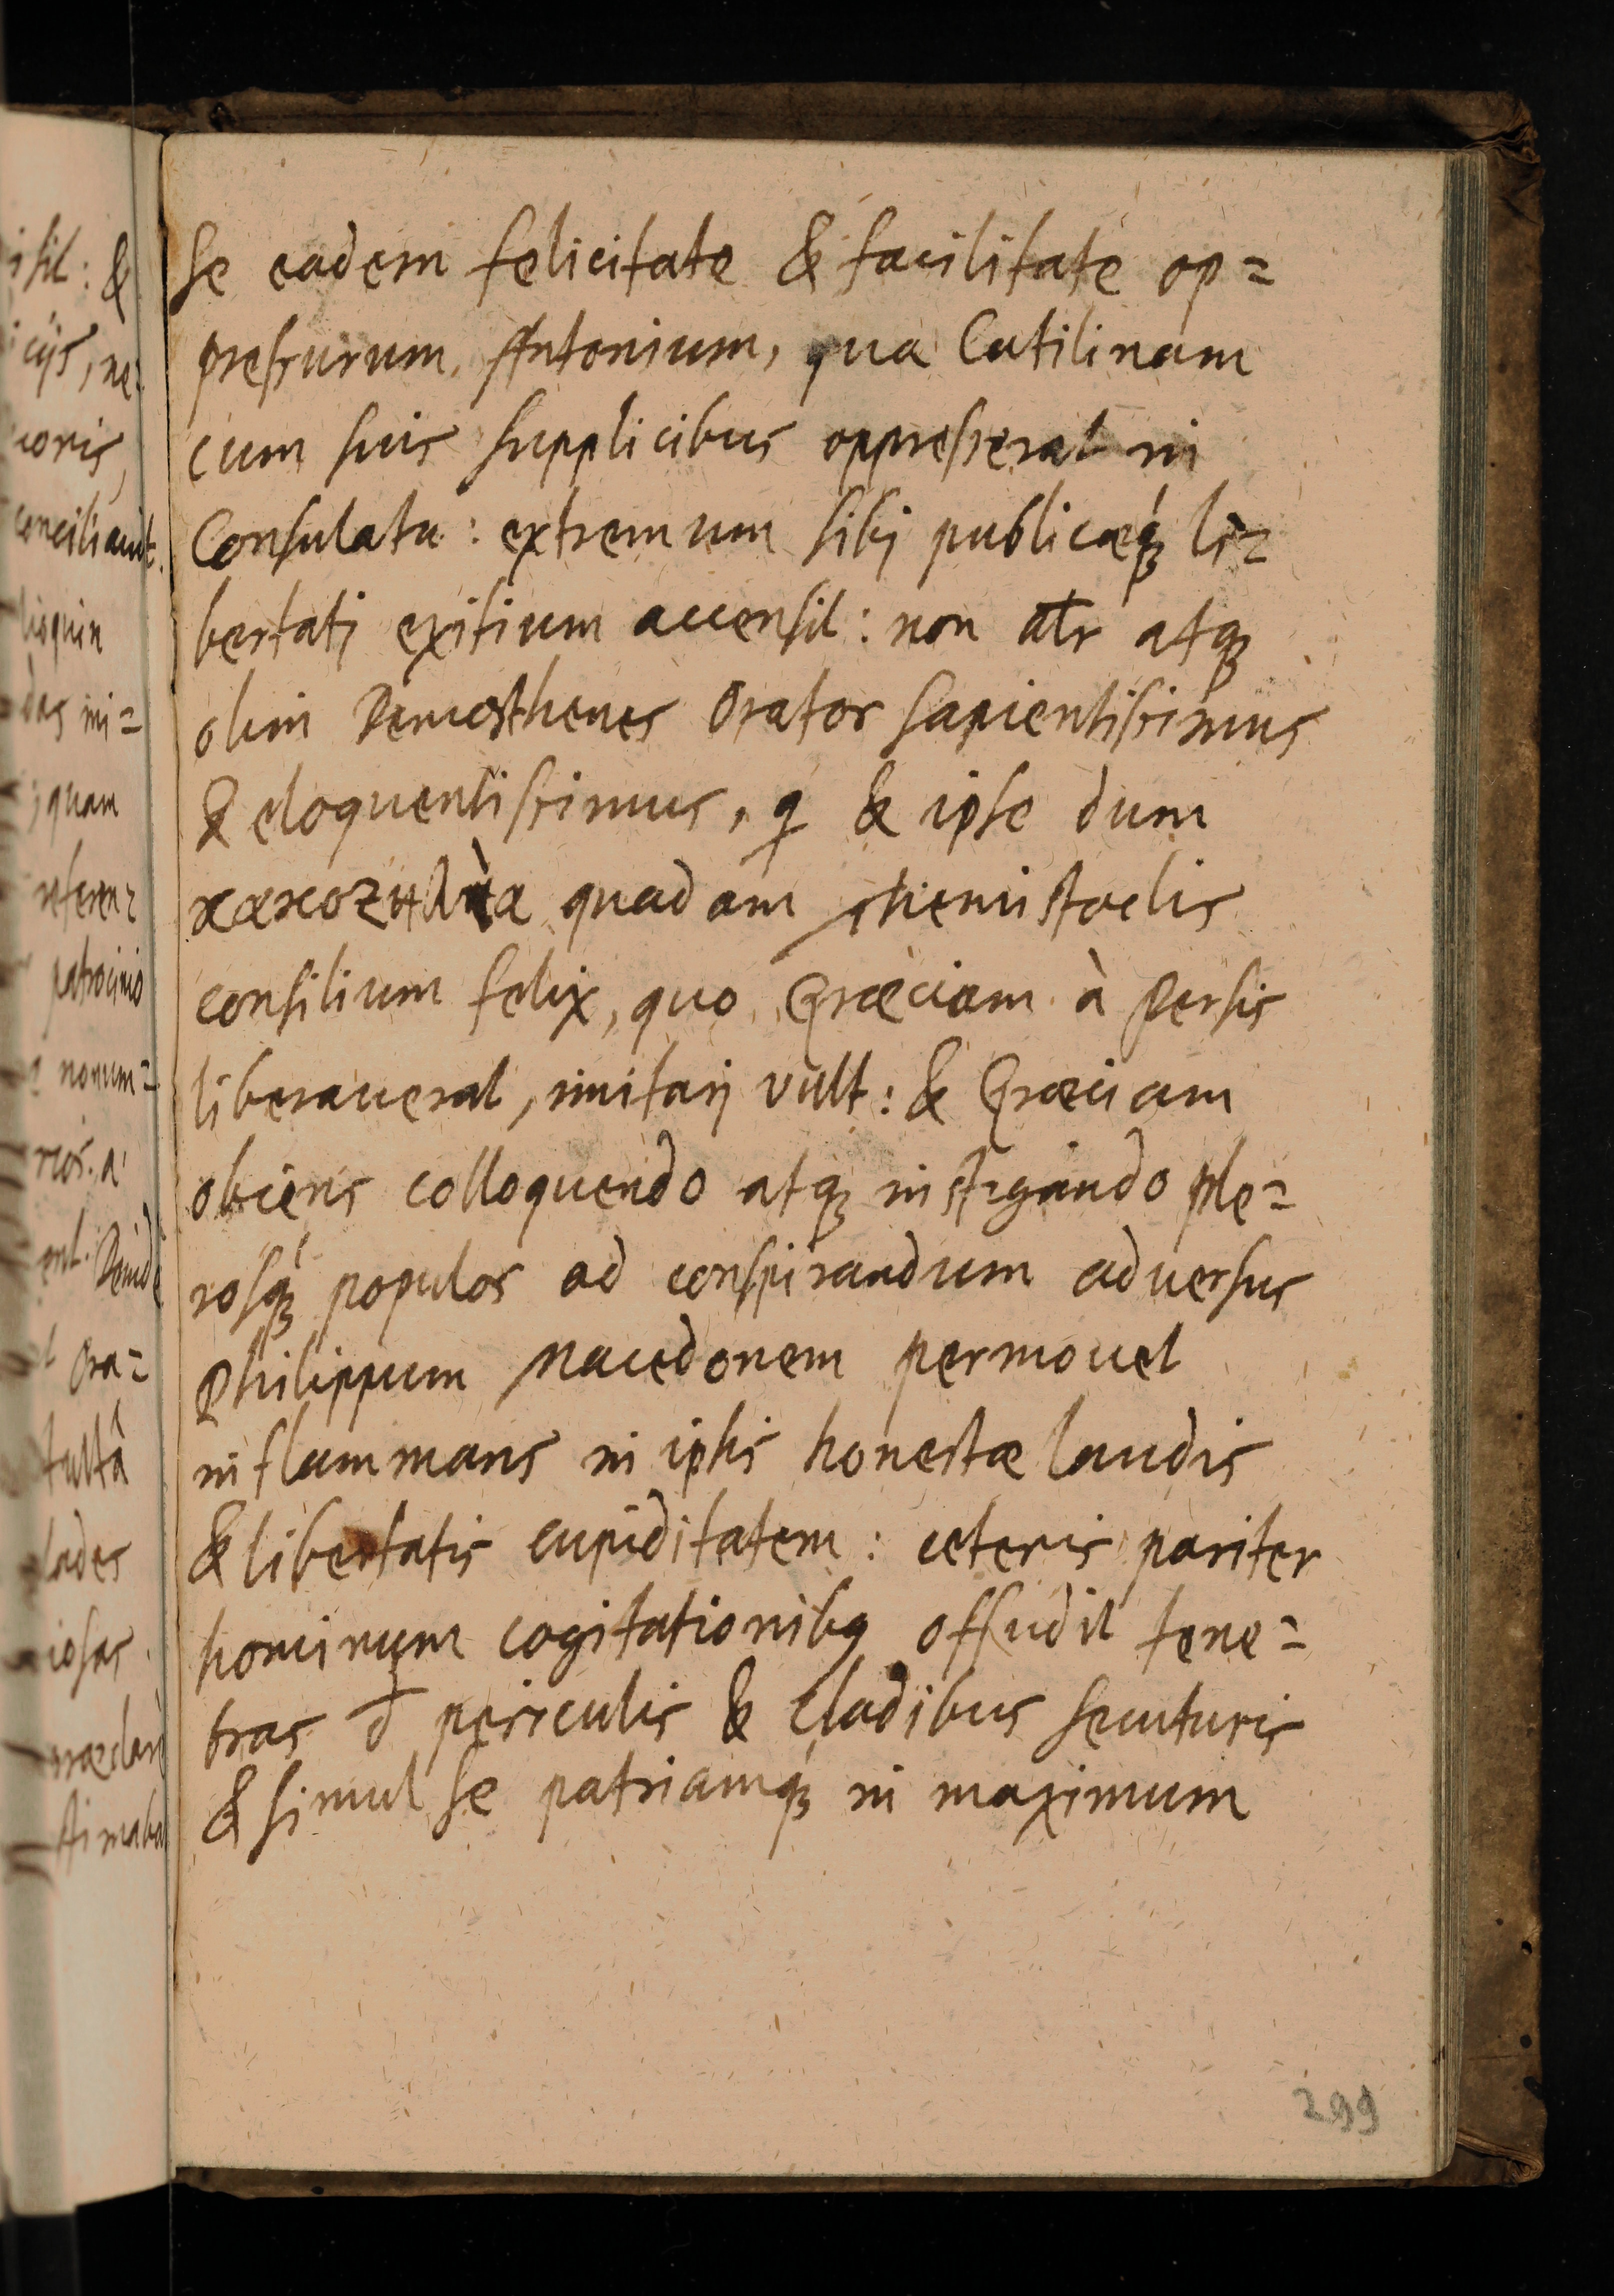 se eadem felicitate & facilitate op=
pressurum, Antonium, qua Catilinam
cum suis supplicibus oppresserat in
Consulatu: extremum sibj publicæq́ꝫ li=
bertatj exitium accersit: non alr̄ atqꝫ
olim Demosthenes Orator sapientissimus
& eloquentissimus, q & ipse dum
κακοζηλία quadam Themistoclis
consilium felix, quo Græciam à Persis
liberauerat, imitarj vult: & Græciam
obiens colloquendo atqꝫ instigando ple=
rosq́ꝫ populos ad conspirandum aduersus
Philippum Macedonem permouet
inflammans in ipsis honestæ laudis
& libertatis cupiditatem: ceteris pariter
hominum cogitationibꝫ offudit tene=
bras đ periculis & cladibus secuturis
& simul se patriamq́ꝫ in maximum
299
isit: &
icijs, ne
uoris,
conciliauit.
lioquin
das in=
; quam
referen=
patrocinio
nonum=
rios. a
Deinde
Ora=
lades
iosas
stimaba